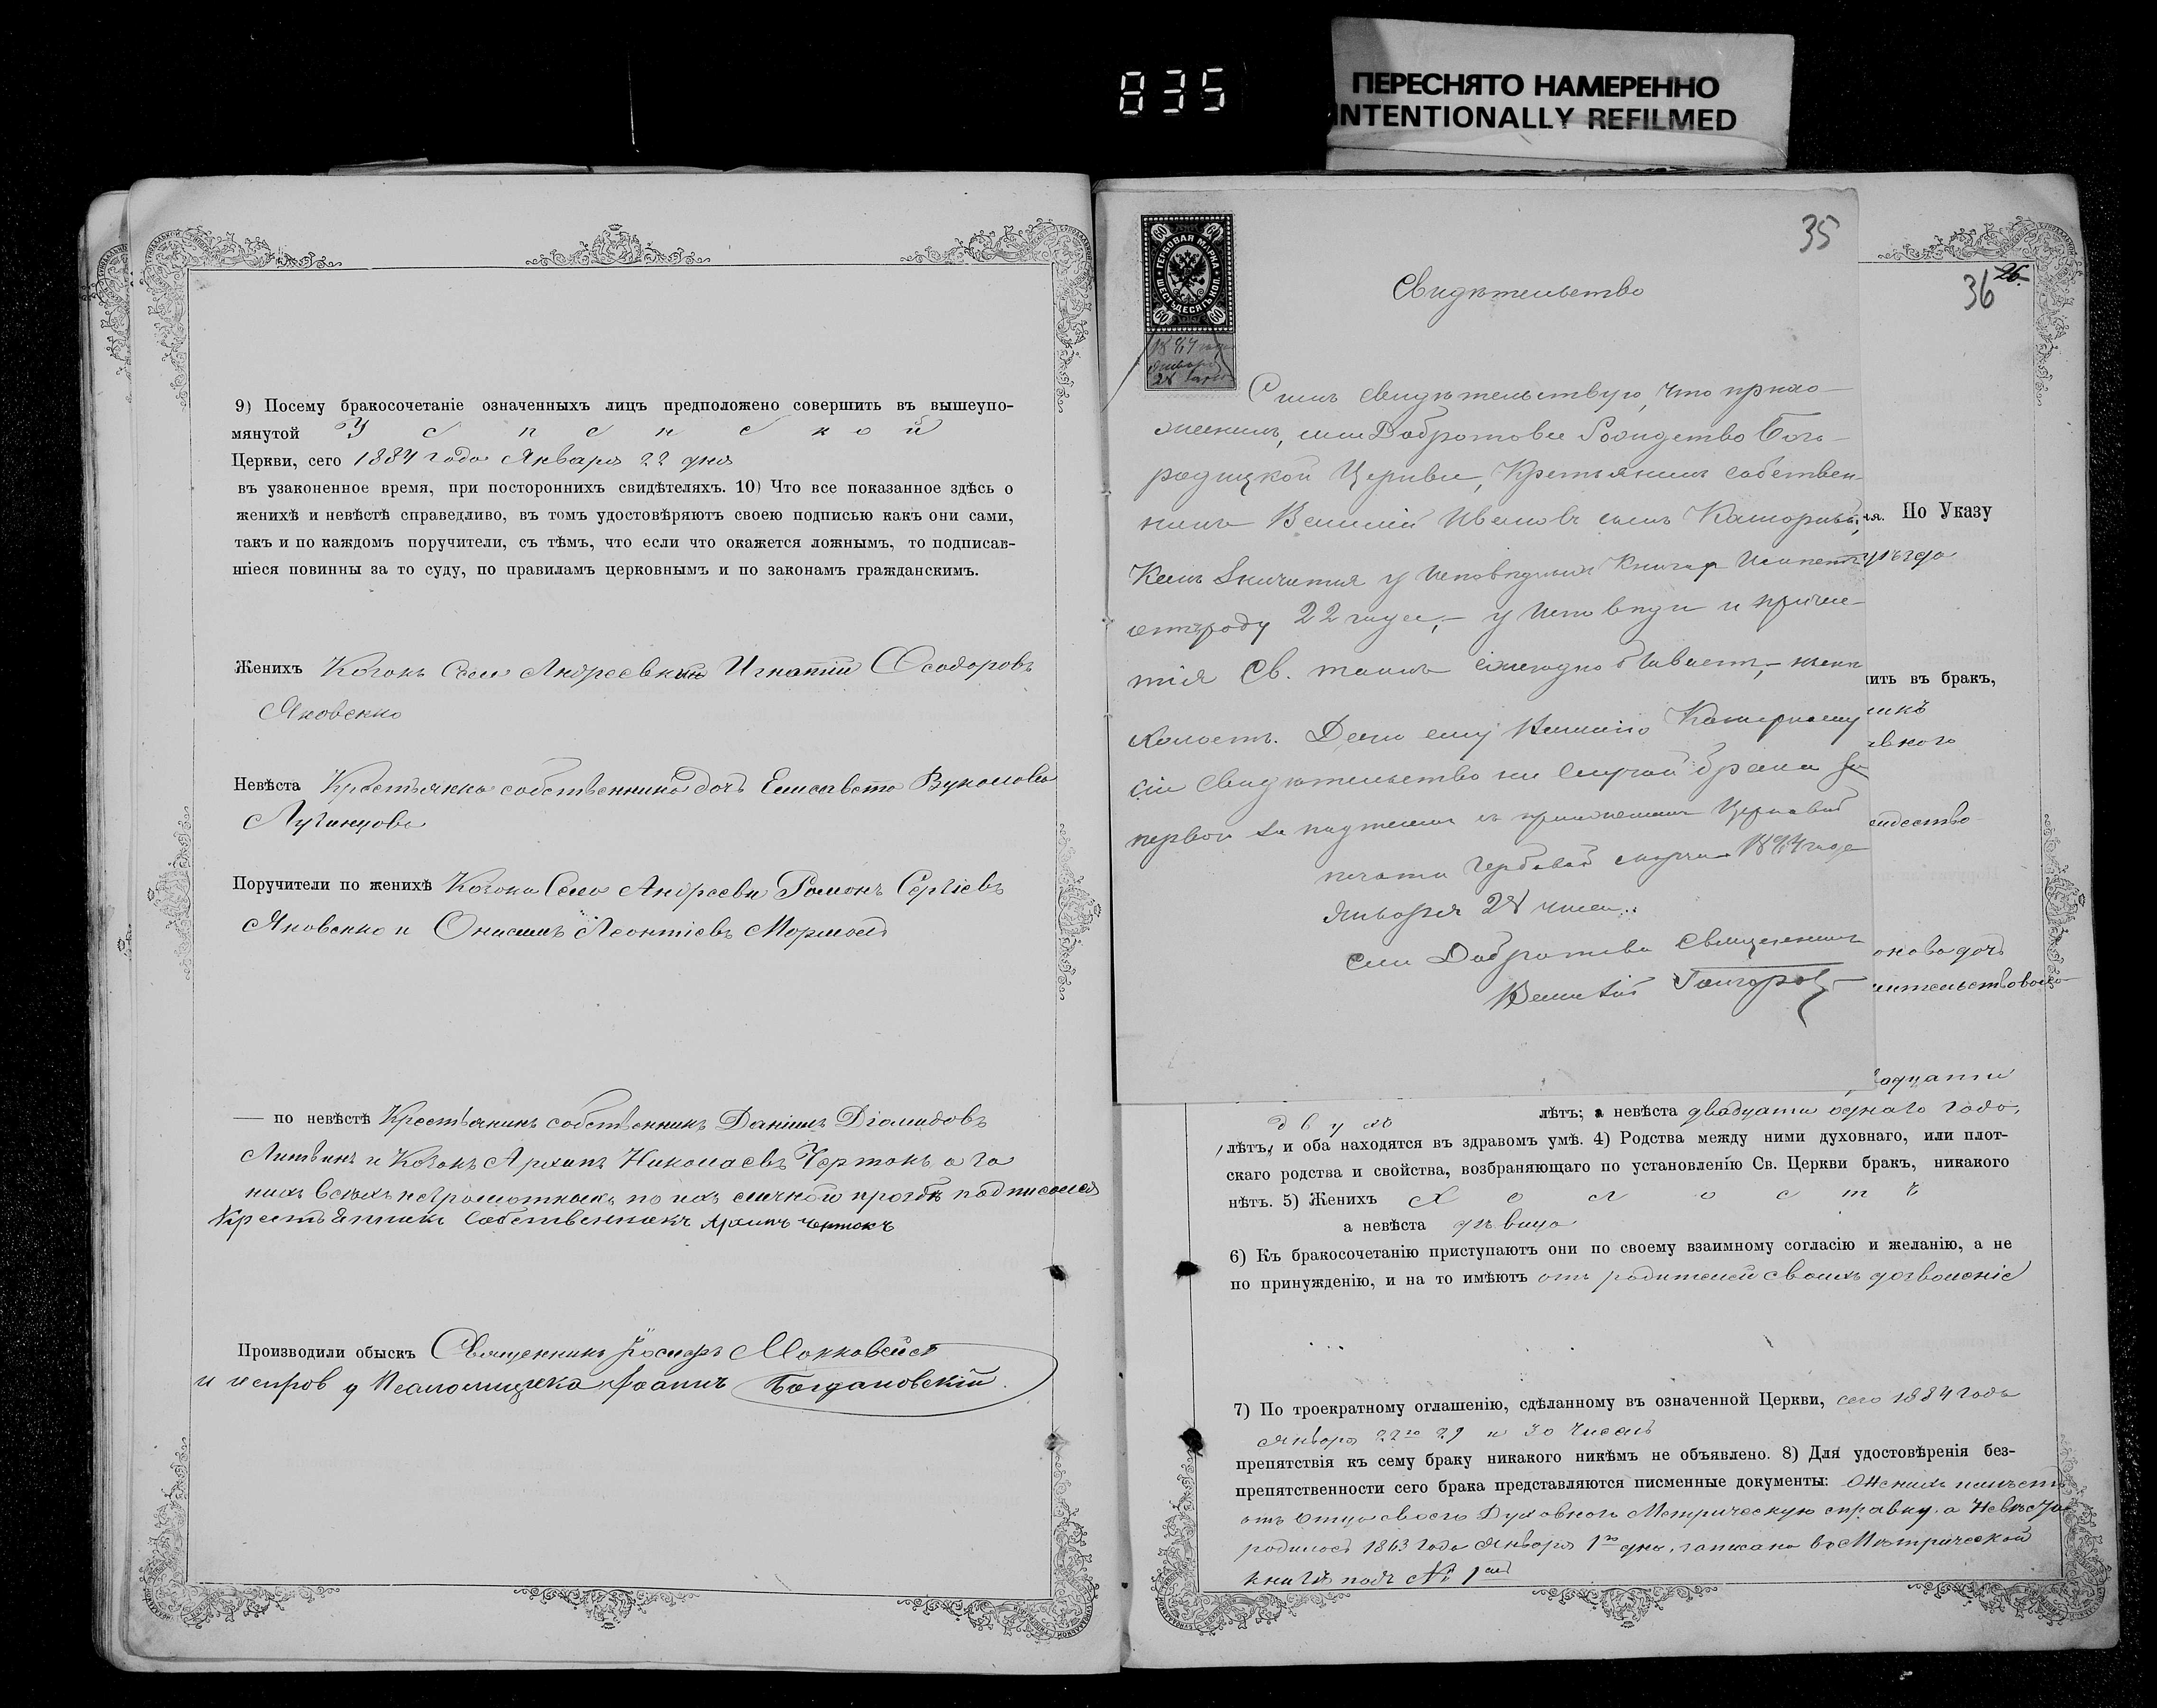 835
ПЕРЕСНЯТО НАМЕРЕННО
INTENTIONALLY REFILMED
9) Посему бракосочетаніе означенныхъ лицъ предположено совершить въ вышеупо-
мянутой Успенской
Церкви, сего 1884 года Января 22 дня
въ узаконенное время, при постороннихъ свидѣтеляхъ. 10) Что все показанное здѣсь о
женихѣ и невѣстѣ справедливо, въ томъ удостовѣряютъ своею подписью какъ они сами,
такъ и по каждомъ поручители, съ тѣмъ, что если что окажется ложнымъ, то подписав-
шіеся повинны за то суду, по правиламъ церковнымъ и по законамъ гражданскимъ.
Женихъ Козакъ Села Андреевки Игнатій Феодоровъ
Яковенко
Невѣста Крестьянка собственника дочь Елисавета Вуколова
Луганцова
Поручители по женихѣ Козаки Села Андреевки Романъ Сергіевъ
Яковенко и Онисимъ Леонтіевъ
— по невѣстѣ Крестьянинъ собственникъ Даніилъ Діомидовъ
Литвинъ и Козакъ Архипъ Николаевъ Чертокъ а за
нихъ всѣхъ неграмотныхъ по ихъ личной прозбѣ подписался
Крестьянинъ Собственникъ Архипъ Чертокъ
Производили обыскъ Священникъ Іосифъ Макковейскій
и испров д Псаломщика Іоаннъ Богдановскій
35
60 60
ГЕРБОВАЯ МАРКА
ШЕСТЬДЕСЯТЪ КОП.
60 60
1884 года
Января
28
Свидѣтельство
Симъ свидѣтельствую, что прихо-
жанинъ, села Добротова Рождество Бого-
родицкой Церкви, Крестьянинъ собствен-
никъ Василій Ивановъ сынъ
22 года, – у исповѣди и прича-
тія Св. таинъ ежегодно бываетъ, –
холостъ. Дано ему Василію
сіе свидѣтельство на случай брака
первой за подписомъ и приложеніемъ Церковной
печати 1884 года
Января 28 числа.
села Добротова Священникъ
Василій
36 26.
По Указу
уѣзда
ить въ бракъ,
никъ
авнаго
ождество
окова дочь
ительствовала
лѣтъ; а невѣста двадцати одного года,
двухъ
лѣтъ, и оба находятся въ здравомъ умѣ. 4) Родства между ними духовнаго, или плот-
скаго родства и свойства, возбраняющаго по установленію Св. Церкви бракъ, никакого
нѣтъ. 5) Женихъ Холостъ
а невѣста дѣвица
6) Къ бракосочетанію приступаютъ они по своему взаимному согласію и желанію, а не
по принужденію, и на то имѣютъ отъ родителей своихъ дозволеніе
7) По троекратному оглашенію, сдѣланному въ означенной Церкви, сего 1884 года
Января 22го 29 и 30 Числъ
препятствія къ сему браку никакого никѣмъ не объявлено. 8) Для удостовѣренія без-
препятственности сего брака представляются писменные документы: Женихъ имѣетъ
отъ Отца своего Духовнаго Метрическую справку, а Невѣста
родилась 1863 года Января 1го дня, записана въ Метрической
книгѣ подъ № 1мъ